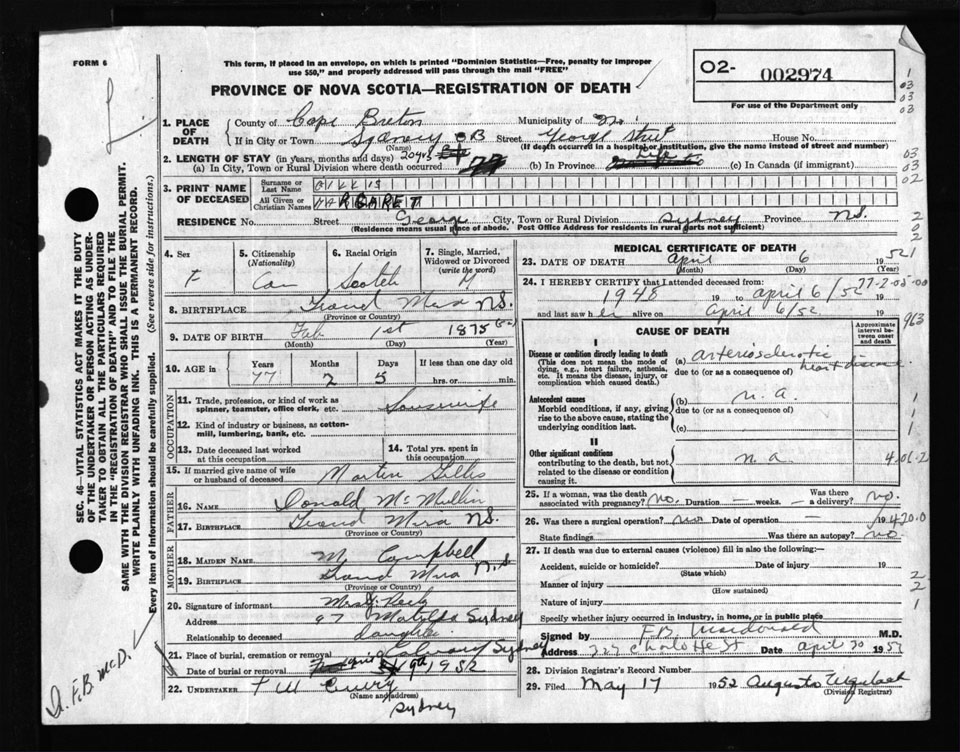 FORM 6
This form, if placed in an envelope, on which is printed "Dominion Statistics—Free, penalty for improper
use $50," and properly addressed will pass through the mail "FREE"
PROVINCE OF NOVA SCOTIA—REGISTRATION OF DEATH
O2- 002974
For use of the Department only
1. PLACE OF DEATH
County of Cape Breton Municipality of
If in City or Town Sydney CB Street George Street House No.
(Name) (If death occurred in a hospital or institution, give the name instead of street and number)
2. LENGTH OF STAY (in years, months and days)
(a) In City, Town or Rural Division where death occurred (b) In Province Life (c) In Canada (if immigrant)
3. PRINT NAME OF DECEASED
Surname or Last Name GILLIS
All Given or Christian Names MARGARET
RESIDENCE No. Street George City, Town or Rural Division Sydney Province N.S.
(Residence means usual place of abode. Post Office Address for residents in rural parts not sufficient)
4. Sex
F
5. Citizenship
(Nationality)
Can
6. Racial Origin
Scotch
7. Single, Married, Widowed or Divorced
(write the word)
M
8. BIRTHPLACE Grand Mira N.S.
(Province or Country)
9. DATE OF BIRTH Feb 1st 1875
(Month) (Day) (Year)
10. AGE in
Years Months Days If less than one day old
77 2 5 hrs. or min.
OCCUPATION
11. Trade, profession, or kind of work as
spinner, teamster, office clerk, etc. Housewife
12. Kind of industry or business, as cotton-
mill, lumbering, bank, etc.
13. Date deceased last worked
at this occupation
14. Total yrs. spent in
this occupation
15. If married give name of wife
or husband of deceased Martin Gillis
FATHER
16. NAME Donald McMullin
17. BIRTHPLACE Grand Mira N.S.
(Province or Country)
MOTHER
18. MAIDEN NAME M. Campbell
19. BIRTHPLACE Grand Mira N.S.
(Province or Country)
20. Signature of informant
Address 97 Matilda Sydney
Relationship to deceased daughter
21. Place of burial, cremation or removal Calvary Sydney
Date of burial or removal 9th 1952
22. UNDERTAKER T W Curry
(Name and address)
Sydney
MEDICAL CERTIFICATE OF DEATH
23. DATE OF DEATH April 6 1952
(Month) (Day) (Year)
24. I HEREBY CERTIFY that I attended deceased from:
1948 19 to April 6/52 19
and last saw her alive on April 6/52 19
CAUSE OF DEATH
Approximate interval between onset and death
I
Disease or condition directly leading to death
(This does not mean the mode of
dying, e.g., heart failure, asthenia,
etc. It means the disease, injury, or
complication which caused death.)
(a) arteriosclerotic
due to (or as a consequence of) heart disease
Antecedent causes
Morbid conditions, if any, giving
rise to the above cause, stating the
underlying condition last.
(b) n.a.
due to (or as a consequence of)
(c)
II
Other significant conditions
contributing to the death, but not
related to the disease or condition
causing it.
n.a
25. If a woman, was the death
associated with pregnancy? no. Duration – weeks. – Was there a delivery? no.
26. Was there a surgical operation? no Date of operation – 19
State findings Was there an autopsy? no
27. If death was due to external causes (violence) fill in also the following:—
Accident, suicide or homicide? Date of injury 19
(State which)
Manner of injury
(How sustained)
Nature of injury
Specify whether injury occurred in industry, in home, or in public place
Signed by F.B. Macdonald M.D.
227 Charlotte St Date April 30 1952
28. Division Registrar's Record Number
29. Filed May 17 1952
(Division Registrar)
SEC. 46—VITAL STATISTICS ACT MAKES IT THE DUTY
OF THE UNDERTAKER OR PERSON ACTING AS UNDER-
TAKER TO OBTAIN ALL THE PARTICULARS REQUIRED
IN THE "REGISTRATION OF DEATH" AND TO FILE THE
SAME WITH THE DIVISION REGISTRAR WHO SHALL ISSUE THE BURIAL PERMIT.
WRITE PLAINLY WITH UNFADING INK. THIS IS A PERMANENT RECORD.
Every item of information should be carefully supplied. (See reverse side for instructions.)
Dr. F.B. McD.
1
03
03
03
03
03
02
2
0
2
77-2-05-00
963
1
1
1
4.01-2
4200
2
2
1